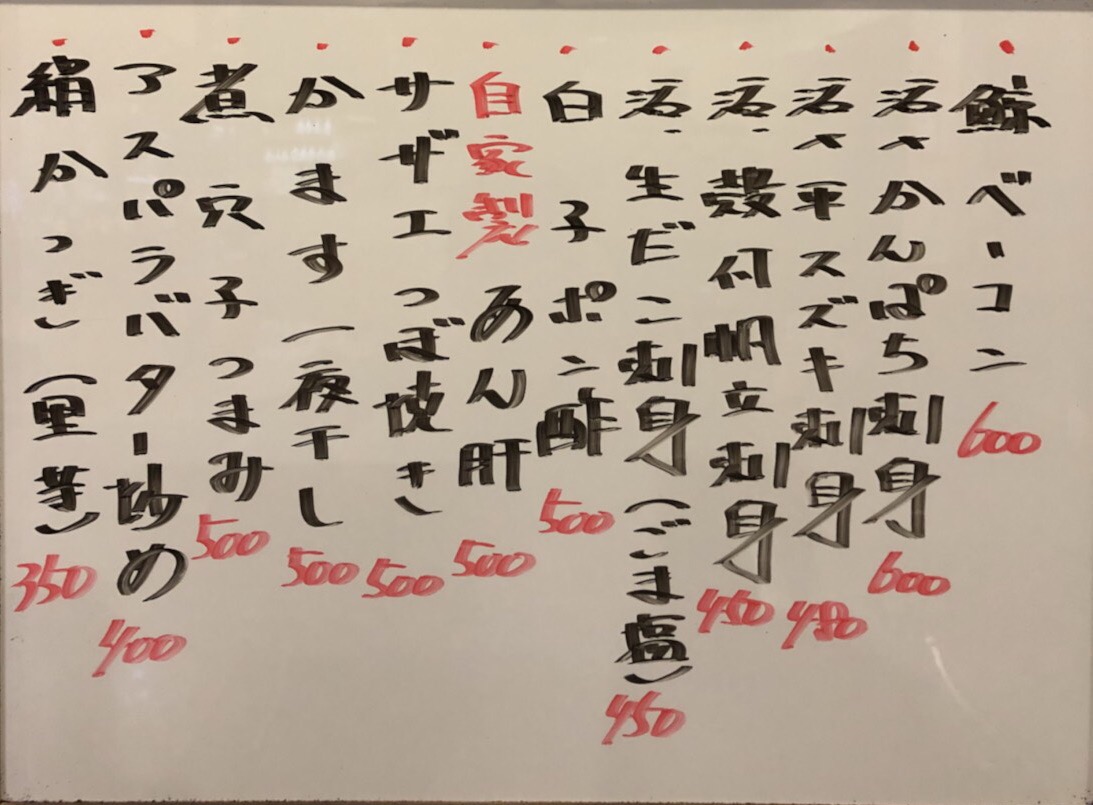 ・鯨ベーコン 600
・活〆かんぱち刺身 600
・活〆平スズキ刺身 480
・活・殻付帆立刺身 450
・活・生だこ刺身(ごま塩) 450
・白子ポン酢 500
・自家製あん肝 500
・サザエつぼ焼き 500
・かます一夜干し 500
・煮穴子つまみ 500
・アスパラバター炒め 400
・絹かつぎ(里芋) 350